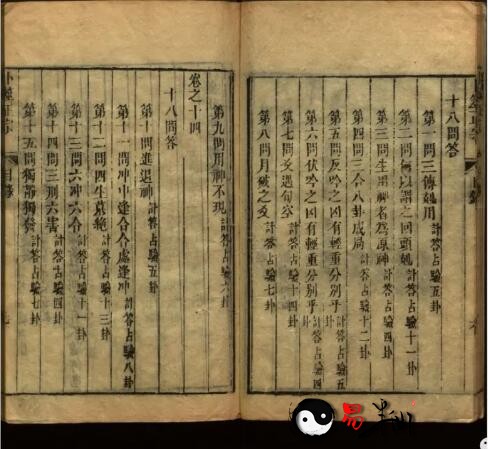 十八問答
第一問三傳剋用 計答占驗五卦
第二問何以謂之回頭剋 計答占驗十一卦
第三問生用神者為原神 計答占驗十二卦
第四問三合八卦成局 計答占驗
第五問反吟之凶有輕重分別乎 計答占驗五
第六問伏吟之凶有輕重分別乎 計答占驗四
第七問爻遇旬空 計答占驗六卦
第八問月破之爻 計答占驗七卦
第九問用神不現 計答占驗六卦
卷之十四
十八問答
第十問進退神 計答占驗五卦
第十一問冲中逢合合處逢冲 計答占驗八卦
第十二問四生墓絶 計答占驗十三卦
第十三問六冲六合 計答占驗一卦
第十四問三刑六害 計答占驗四卦
第十五問獨靜獨發 計答占驗七卦
目錄
易